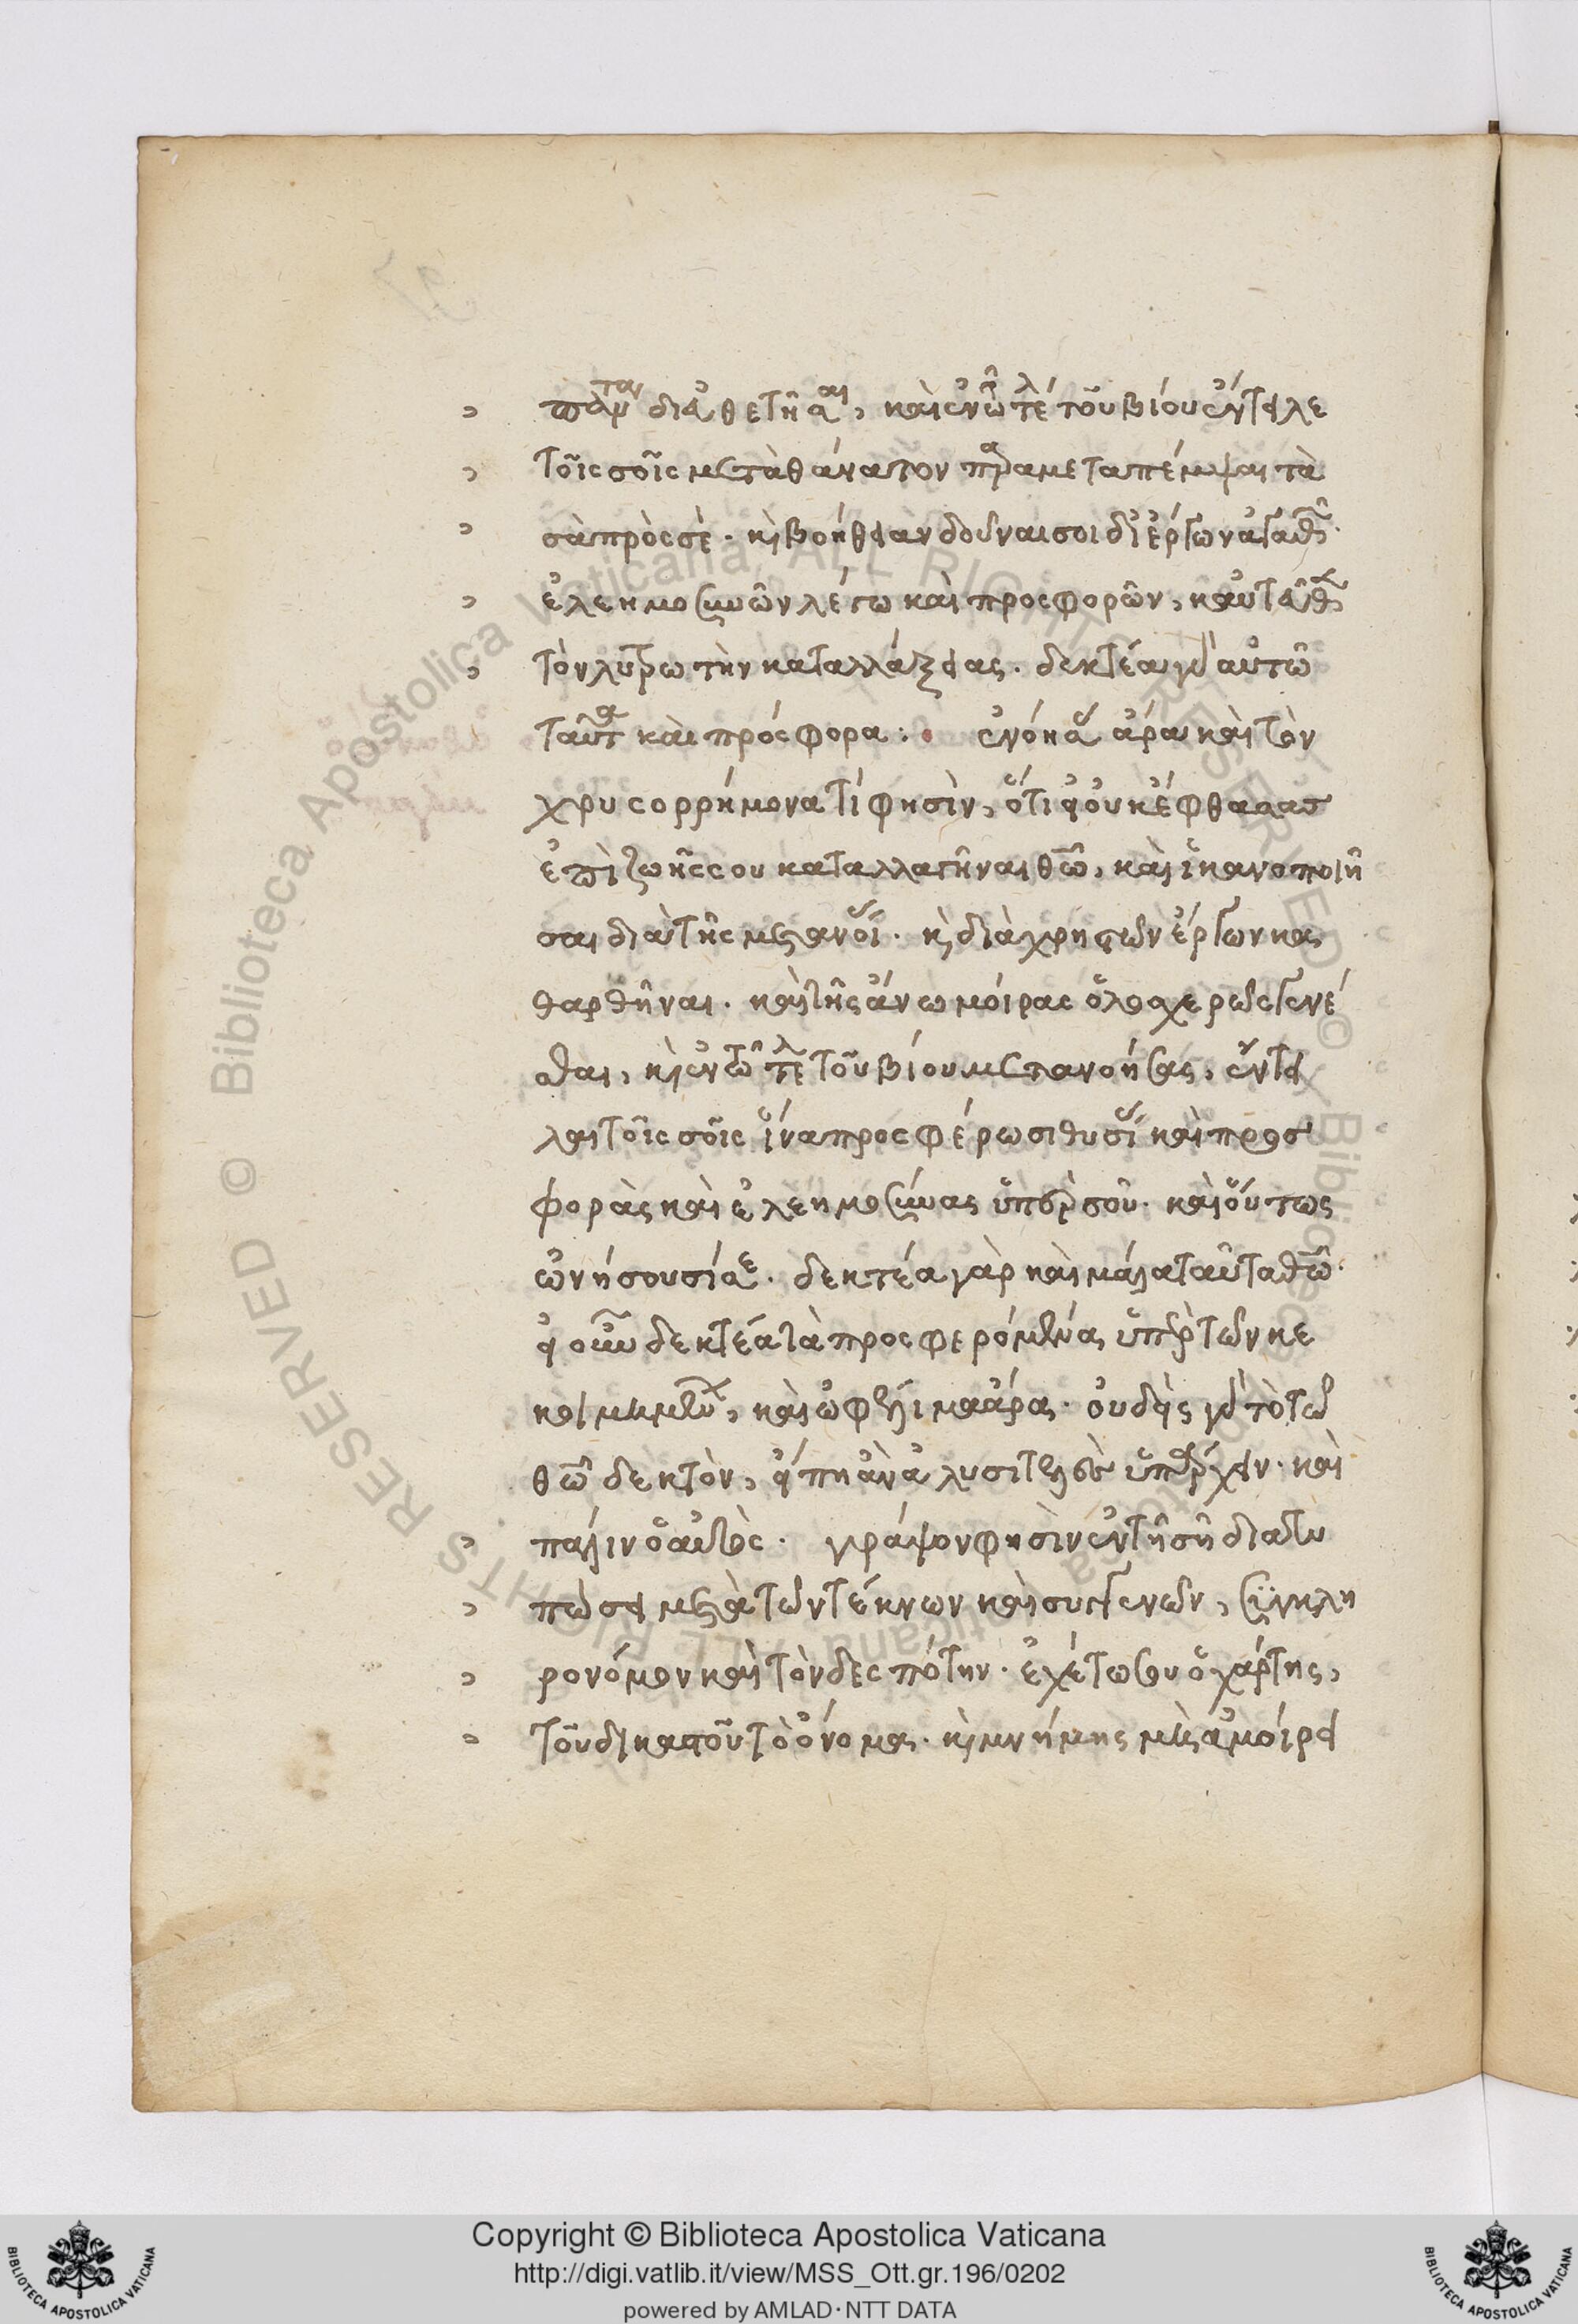 πάντα διαθεῖναι, καὶ ἐν τῶ τέλει τοῦ βίου ἔντειλε
τοῖς σοῖς μετὰ θάνατον μεταπέμψαι τὰ
σὰ πρὸς σὲ. καὶ βοήθειαν δοῦναι σοι δι' ἔργων ἀγαθῶν.
ἐλεημοσυνῶν λέγω καὶ προσφορῶν,
τὸν λυτρωτὴν καταλλάξειας. δεκτέα γὰρ αὐτῶ
ταῦτα καὶ πρόσφορα: ἄρα καὶ τὸν
χρυσορρήμονα τί φησὶν, ὅτι εἰ οὐκ ἔφθασας
ἐπὶ ζωῆς σου καταλλαγῆναι θῶ, καὶ ἱκανοποιῆ
σαι διὰ τῆς μετανοί. καὶ διὰ χρηστῶν ἔργων κα
θαρθῆναι. καὶ τῆς ἄνω μοίρας ὁλοσχερῶς γενέ
σθαι, καὶ ἐν τῶ τέλει τοῦ βίου μετανοήσας, ἔντει
λαι τοῖς σοῖς ἵνα προσφέρωσι θυσί καὶ προσ
φορὰς καὶ ἐλεημοσύνας ὑπὲρ σοῦ. καὶ οὕτως
ὠνήσουσί σε. δεκτέα γὰρ καὶ μάλα ταῦτα θῶ.
εἰ οὖν δεκτέα τὰ προσφερόμενα ὑπὲρ τῶν κε
κοιμημένων, καὶ ὠφέλιμα ἄρα. οὐδεὶς γὰρ τὸ τῶ
θῶ δεκτὸν, εἴπη ἂν ἀλυσιτελὲς ὑπάρχειν. καὶ
πάλιν ὁ αὐτὸς. γράψον φησὶν ἐν τῆ σῆ διατυ
πώσει μετὰ τῶν τέκνων καὶ συγγενῶν, συγκλη
ρονόμον καὶ τὸν δεσπότην. ἐχέτω σου ὁ χάρτης,
τοῦ δικαστοῦ τὸ ὄνομα. καὶ μνήμης μὴ ἀμοίρει
Copyright © Biblioteca Apostolica Vaticana
http://digi.vatlib.it/view/MSS_Ott.gr.196/0202
powered by AMLAD·NTT DATA